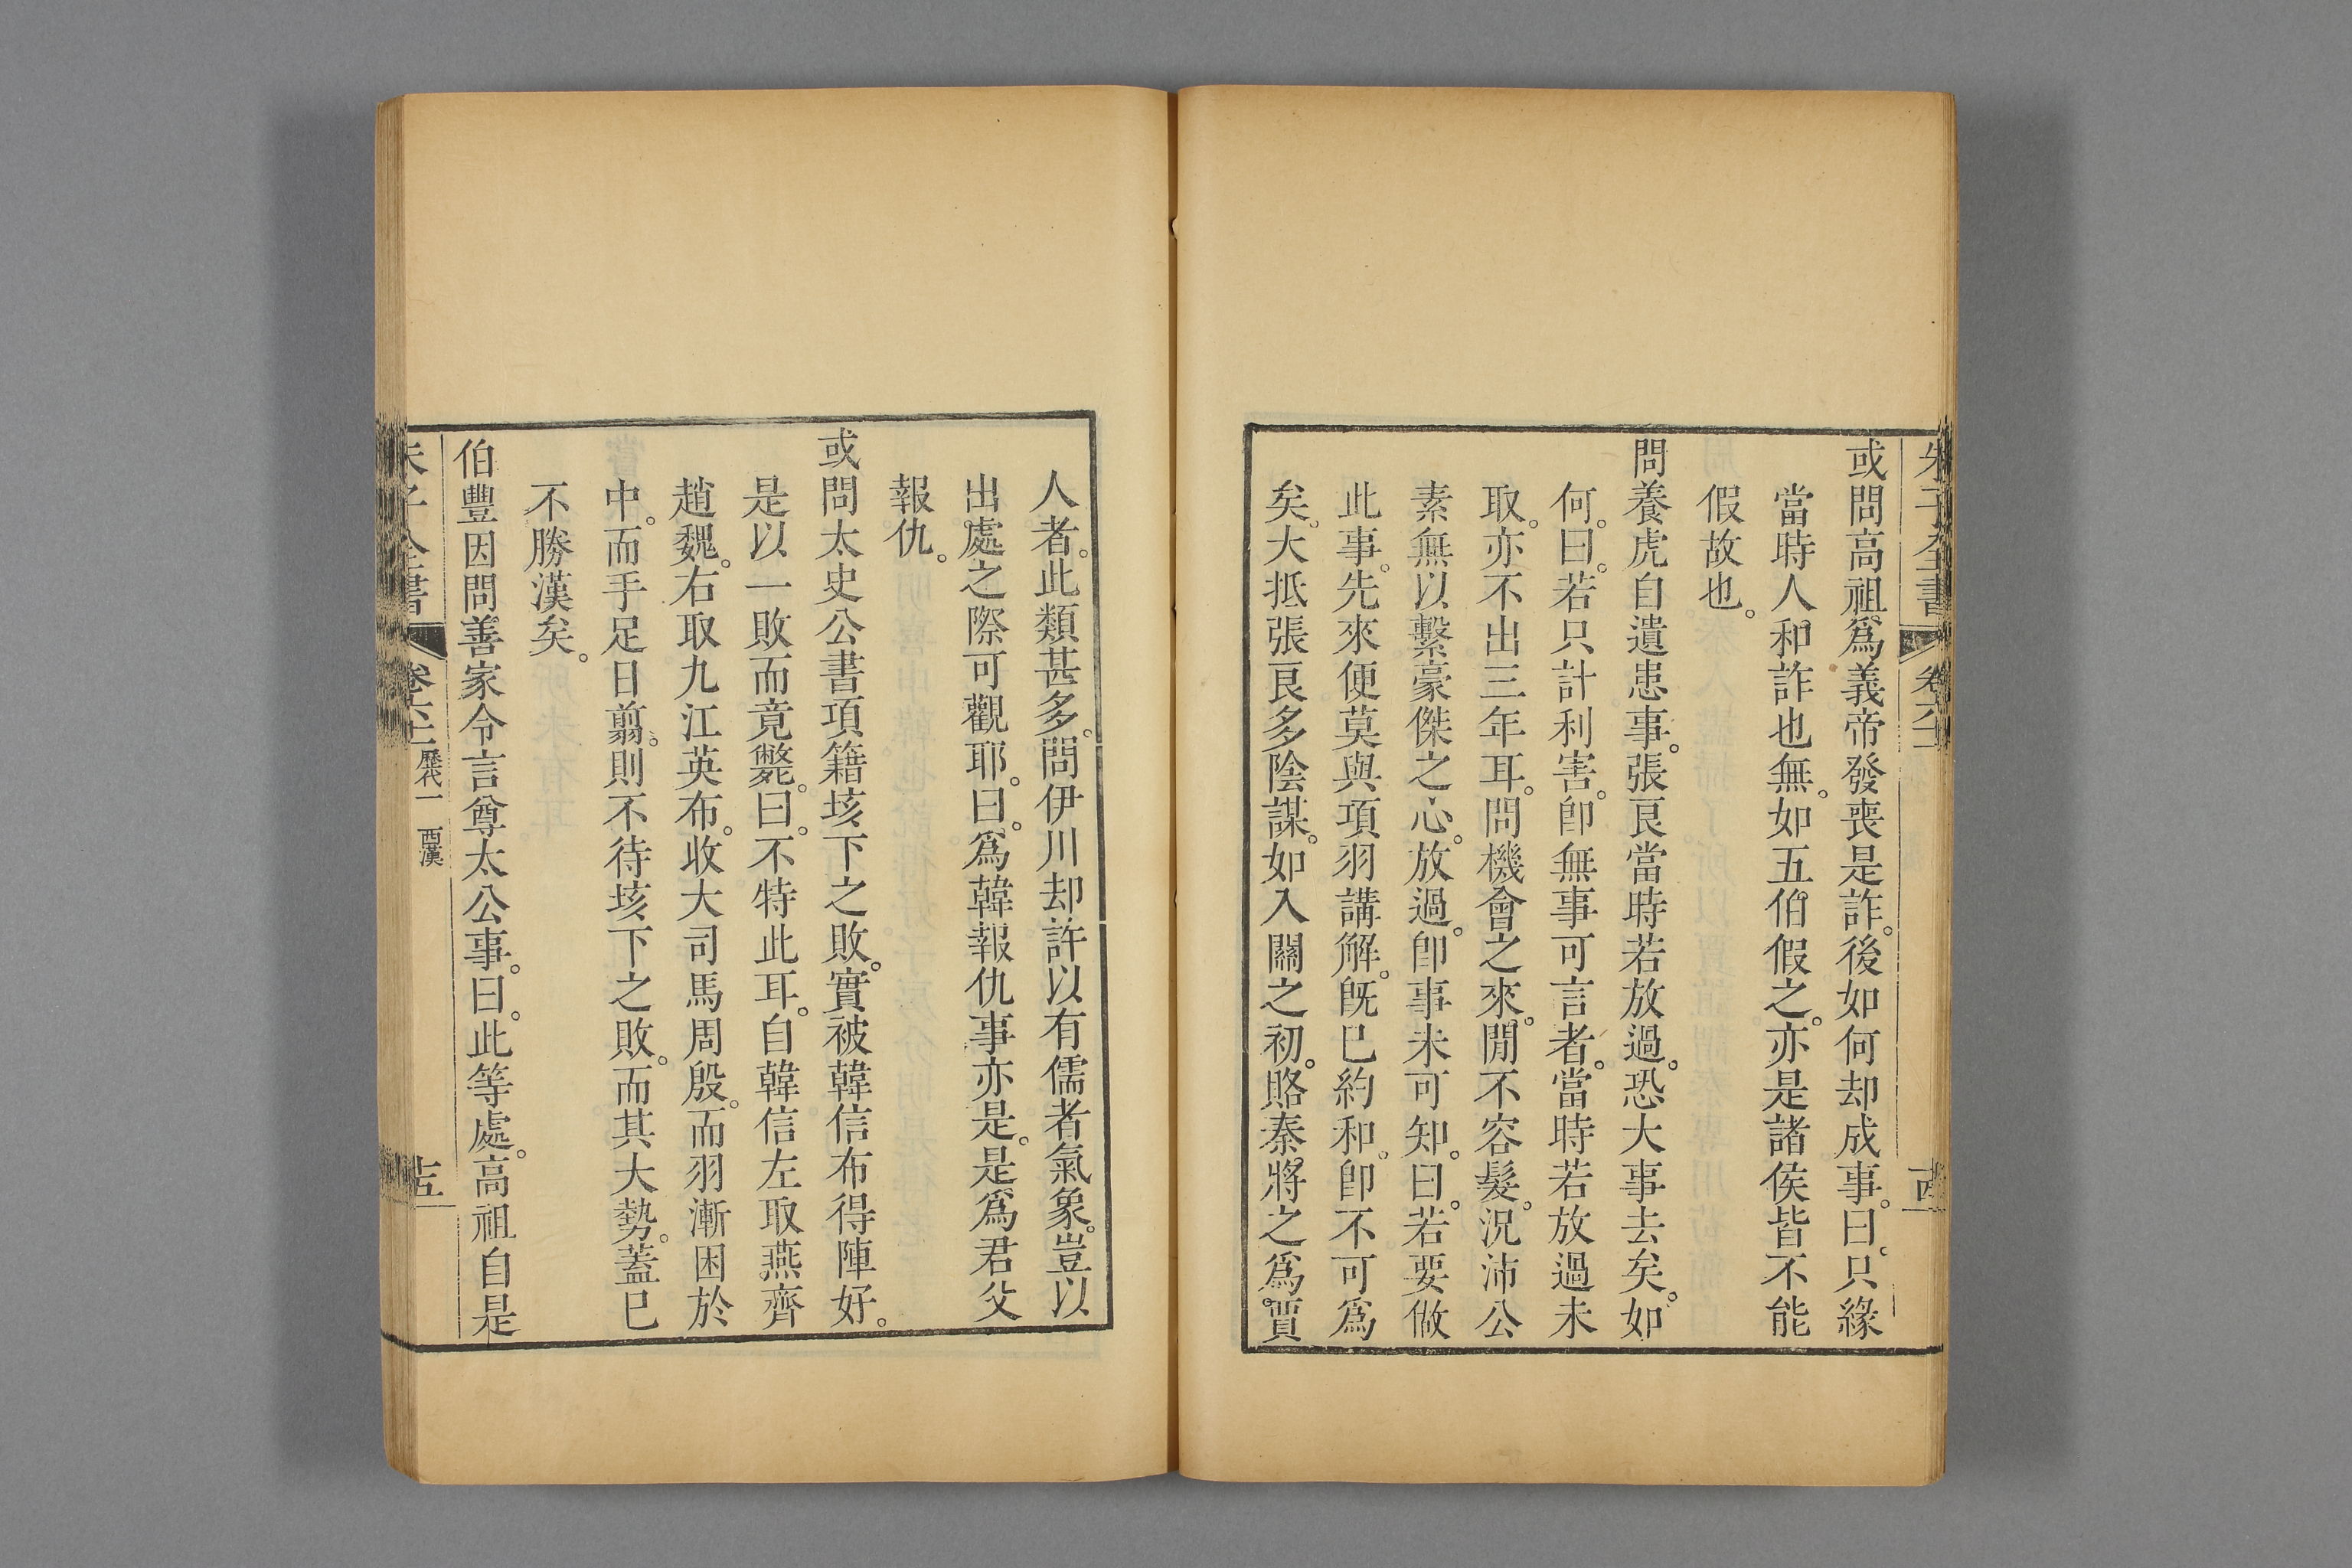 朱子全書 卷六十一 十四
或問高祖爲義帝發喪是詐。後如何却成事。曰。只緣
當時人和詐也無。如五伯假之。亦是諸侯皆不能
假故也。
問養虎自遺患事。張良當時若放過。恐大事去矣。如
何。曰。若只計利害。卽無事可言者。當時若放過未
取。亦不出三年耳。問機會之來。閒不容髮。況沛公
素無以繫豪傑之心。放過。卽事未可知。曰。若要做
此事。先來便莫與項羽講解。旣已約和。卽不可爲
矣。大抵張良多陰謀。如入關之初。賂秦將之爲賈
人者。此類甚多。問伊川却許以有儒者氣象。豈以
出處之際可觀耶。曰。爲韓報仇事亦是。是爲君父
報仇。
或問太史公書項籍垓下之敗。實被韓信布得陣好。
是以一敗而竟斃。曰。不特此耳。自韓信左取燕齊
趙魏。右取九江英布。收大司馬周殷。而羽漸困於
中。而手足日翦。則不待垓下之敗。而其大勢。蓋已
不勝漢矣。
伯豐因問善家令言尊太公事。曰。此等處。高祖自是
朱子全書 卷六十一 歷代一 西漢 十五